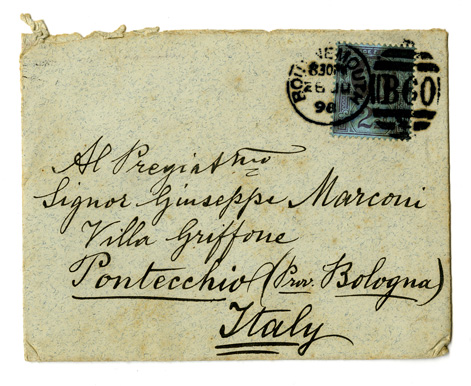 BOURNEMOUTH
830PM
26 JU
98
B60
2
Al Pregiatmo
Signor Giuseppe Marconi
Villa Griffone
Pontecchio (Prov. Bologna)
Italy